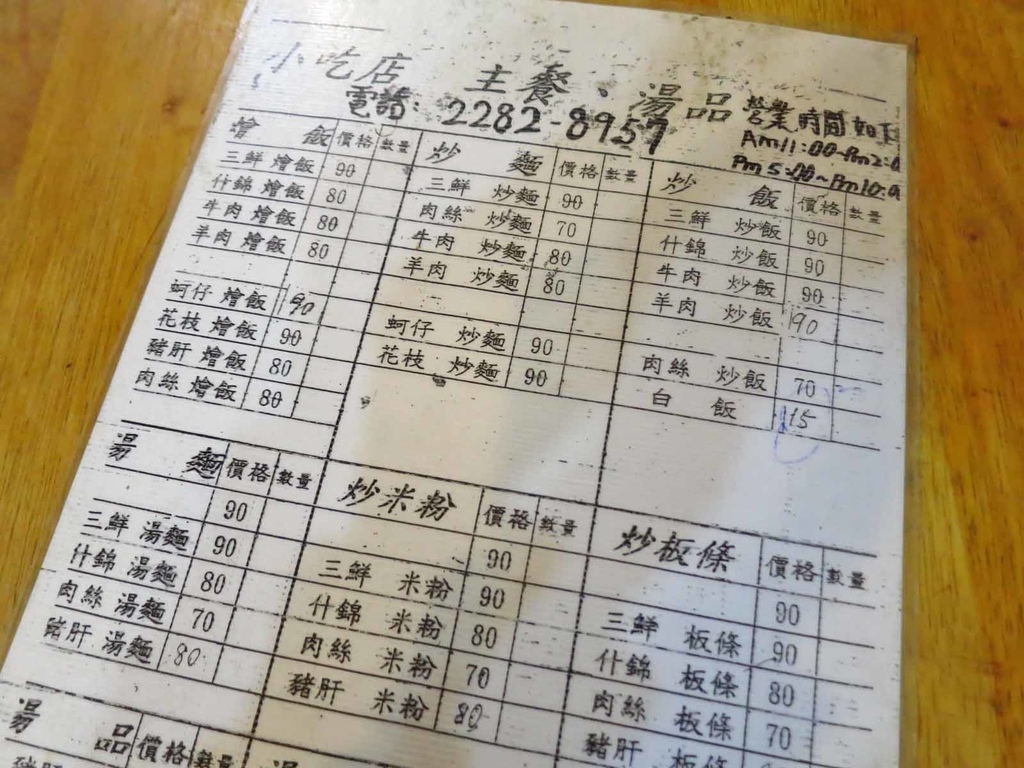 小吃店 主餐、湯品
電話: 2282-8957
營業時間如下
Am11:00~Pm2:0
Pm5:00~Pm10:0
燴飯 價格 數量
三鮮 燴飯 90
什錦 燴飯 80
牛肉 燴飯 80
羊肉 燴飯 80
蚵仔 燴飯 90
花枝 燴飯 90
豬肝 燴飯 80
肉絲 燴飯 80
炒麵 價格 數量
三鮮 炒麵 90
肉絲 炒麵 70
牛肉 炒麵 80
羊肉 炒麵 80
蚵仔 炒麵 90
花枝 炒麵 90
炒飯 價格 數量
三鮮 炒飯 90
什錦 炒飯 90
牛肉 炒飯 90
羊肉 炒飯 90
肉絲 炒飯 70
白飯 15
湯麵 價格 數量
90
三鮮 湯麵 90
什錦 湯麵 80
肉絲 湯麵 70
豬肝 湯麵 80
炒米粉 價格 數量
90
三鮮 米粉 90
什錦 米粉 80
肉絲 米粉 70
豬肝 米粉 80
炒板條 價格 數量
90
三鮮 板條 90
什錦 板條 80
肉絲 板條 70
豬肝 板條
湯品 價格 數量
豬肝
湯